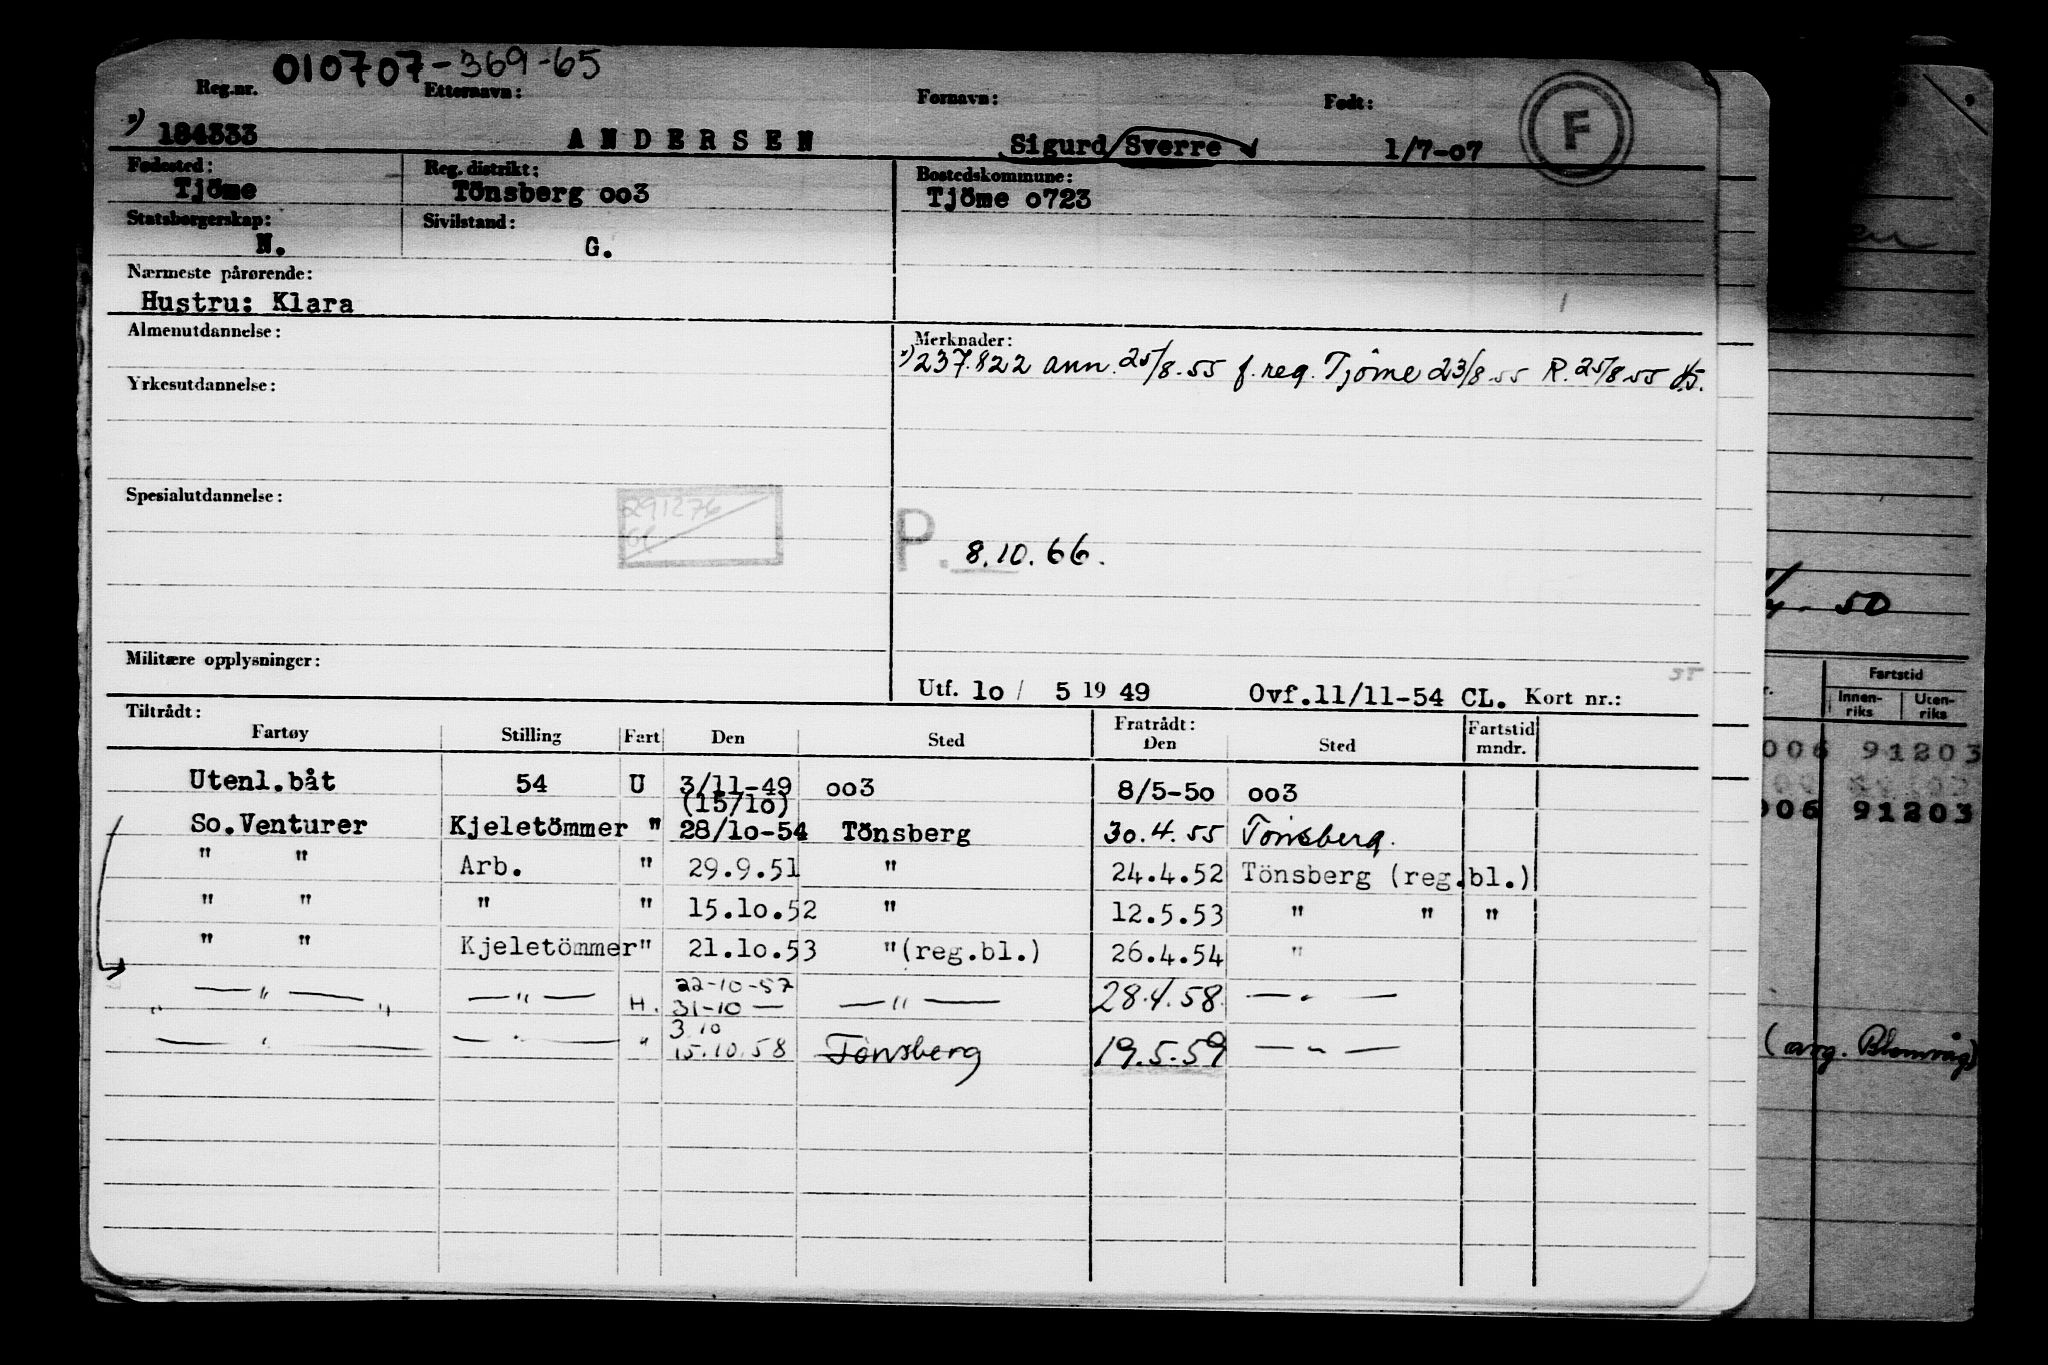 010707-369-65
Reg.nr. Etternavn: Fornavn: Født:
*) 184333 ANDERSEN Sigurd Sverre 1/7-o7 F
Fødested: Reg. distrikt: Bostedskommune:
Tjöme Tönsberg oo3 Tjöme o723
Statsborgerskap: Sivilstand:
N. G.
Nærmeste pårørende:
Hustru: Klara
Almenutdannelse: Merknader:
*) 237.822 ann. 25/8-55 f. reg. Tjöme 23/8-55 R. 25/8-55
Yrkesutdannelse:
Spesialutdannelse:
291276
P. 8.10.66.
Militære opplysninger:
35
Utf. 1o / 5 19 49 Ovf.11/11-54 CL. Kort nr.:
Tiltrådt: Fratrådt: Fartstid
Fartøy Stilling Fart Den Sted Den Sted mndr.
Utenl.båt 54 U 3/11-49 oo3 8/5-5o oo3
(15/1o)
So.Venturer Kjeletömmer " 28/1o-54 Tönsberg 30.4.55 Tönsberg.
" " Arb. " 29.9.51 " 24.4.52 Tönsberg (reg.bl.)
" " " " 15.1o.52 " 12.5.53 " " "
" " Kjeletömmer" 21.1o.53 "(reg.bl.) 26.4.54 "
22-10-57
— " — " — " — H. 31-10 — — " — 28.4.58. — " —
3.10
— " — — " — " 15.10.58 Tönsberg 19.5.59 — " —
50
Fartstid
Innen-riks Uten-riks
006 91203
006 91203
(avg. Blomvåg)